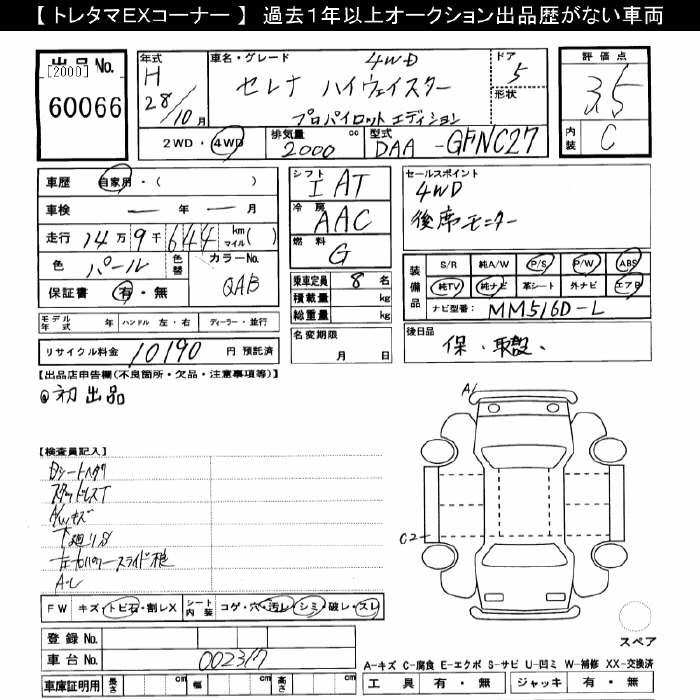 【 トレタマEXコーナー 】 過去１年以上オークション出品歴がない車両
出品 No.
[2000]
60066
年式
H
28/10 月
車名・グレード
4WD
セレナ ハイウェイスター
プロパイロット エディション
ドア
5
形状
2WD・4WD
排気量
2000 cc
型式
DAA -GFNC27
評価点
3.5
内装
C
車歴 自家用・( )
車検 ー 年 ー 月
走行 14万 9千 644 km マイル( )
色 パール
色替
カラーNo.
QAB
保証書 有・無
モデル年式 年 ハンドル 左・右 ディーラー・並行
リサイクル料金 10190 円 預託済
シフト
I AT
冷房
AAC
燃料
G
乗車定員 8 名
積載量 kg
総重量 kg
名変期限
月 日
セールスポイント
4WD
後席モニター
装備品
S/R 純A/W P/S P/W ABS
純TV 純ナビ 革シート 外ナビ エアB
ナビ型番: MM516D-L
後日品
保、取説、
【出品店申告欄(不良箇所・欠品・注意事項等)】
初出品
【検査員記入】
スタッドレスT
A-L
FW キズ・トビ石・割レX
シート内装 コゲ・穴・汚レ・シミ・破レ・スレ
登録 No.
車台 No. 002317
車庫証明用 長さ cm 幅 cm 高さ cm
A-L
C2
スペア
A-キズ C-腐食 E-エクボ S-サビ U-凹ミ W-補修 XX-交換済
工具 有・無 ジャッキ 有・無